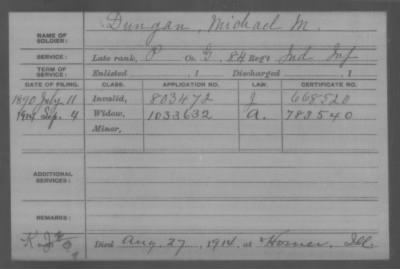 NAME OF SOLDIER: Dungan, Michael M.
SERVICE: Late rank, P Co. G, 84 Reg't Ind Inf
TERM OF SERVICE: Enlisted , 1 Discharged , 1
DATE OF FILING. CLASS. APPLICATION NO. LAW. CERTIFICATE NO.
1890 July 11 Invalid, 803472 J 668520
1914 Sep. 4 Widow, 1033632 A. 783540
Minor,
ADDITIONAL SERVICES:
REMARKS:
Died Aug. 27, 1914, at Homer, Ill.